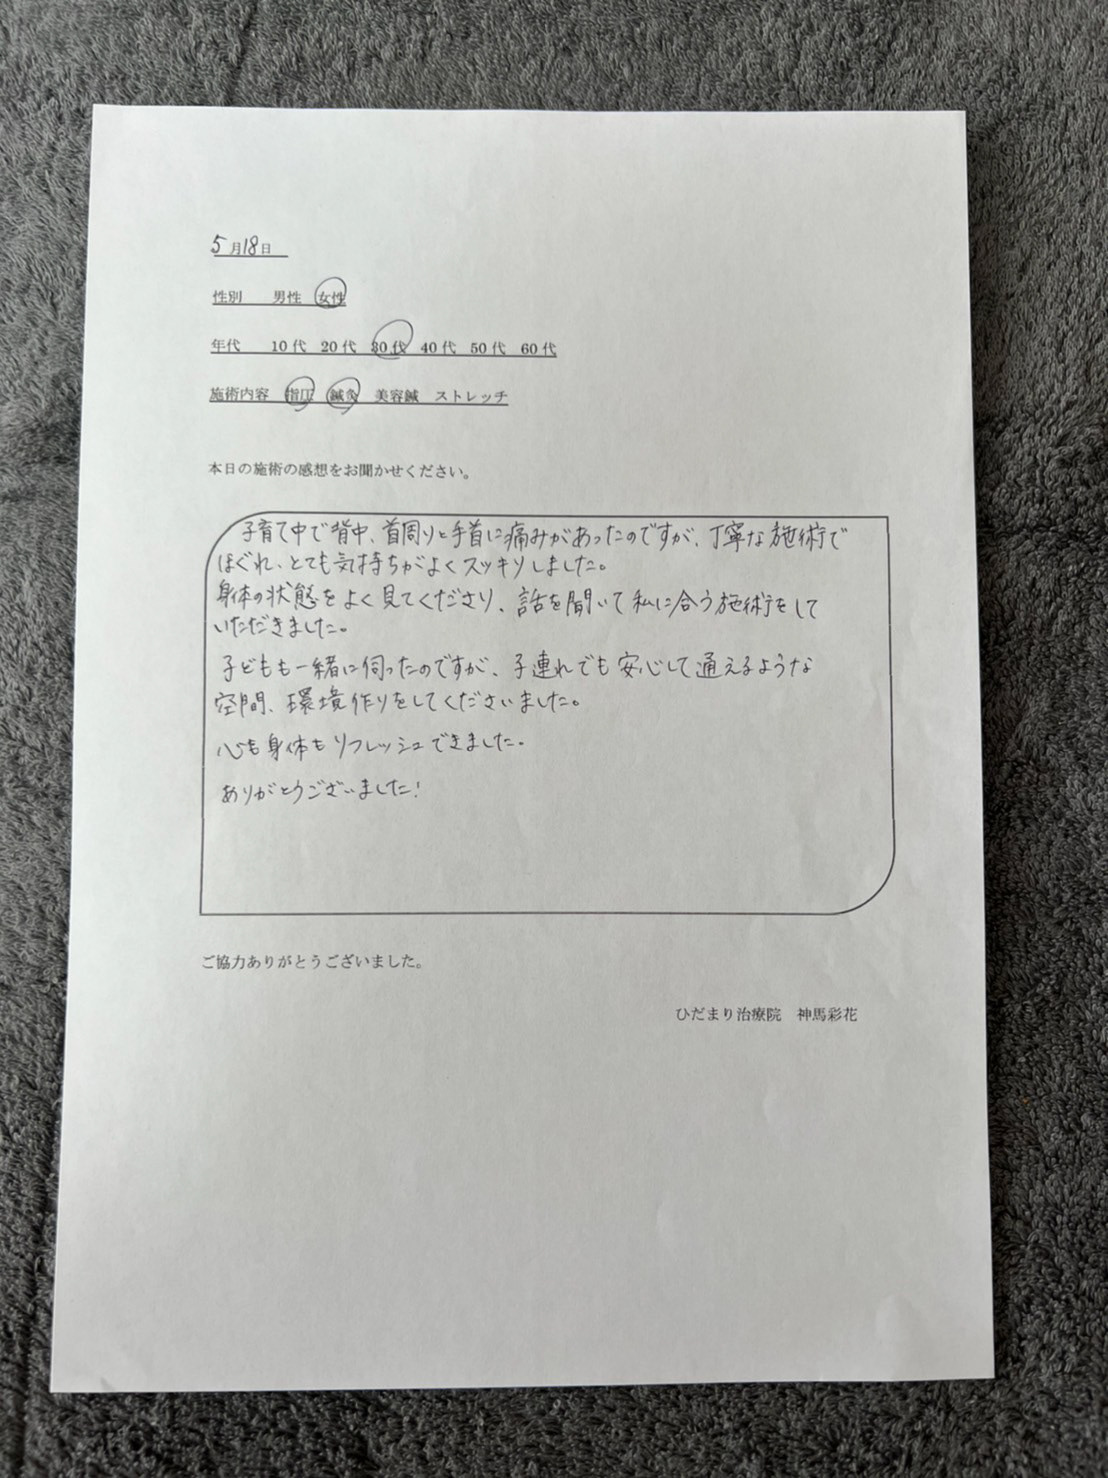 5月18日
性別　男性　女性
年代　10代　20代　30代　40代　50代　60代
施術内容　指圧　鍼灸　美容鍼　ストレッチ
本日の施術の感想をお聞かせください。
子育て中で背中、首周りと手首に痛みがあったのですが、丁寧な施術で
ほぐれ、とても気持ちがよくスッキリしました。
身体の状態をよく見てくださり、話を聞いて私に合う施術をして
いただきました。
子どもも一緒に伺ったのですが、子連れでも安心して通えるような
空間、環境作りをしてくださいました。
心も身体もリフレッシュできました。
ありがとうございました!
ご協力ありがとうございました。
ひだまり治療院　神馬彩花